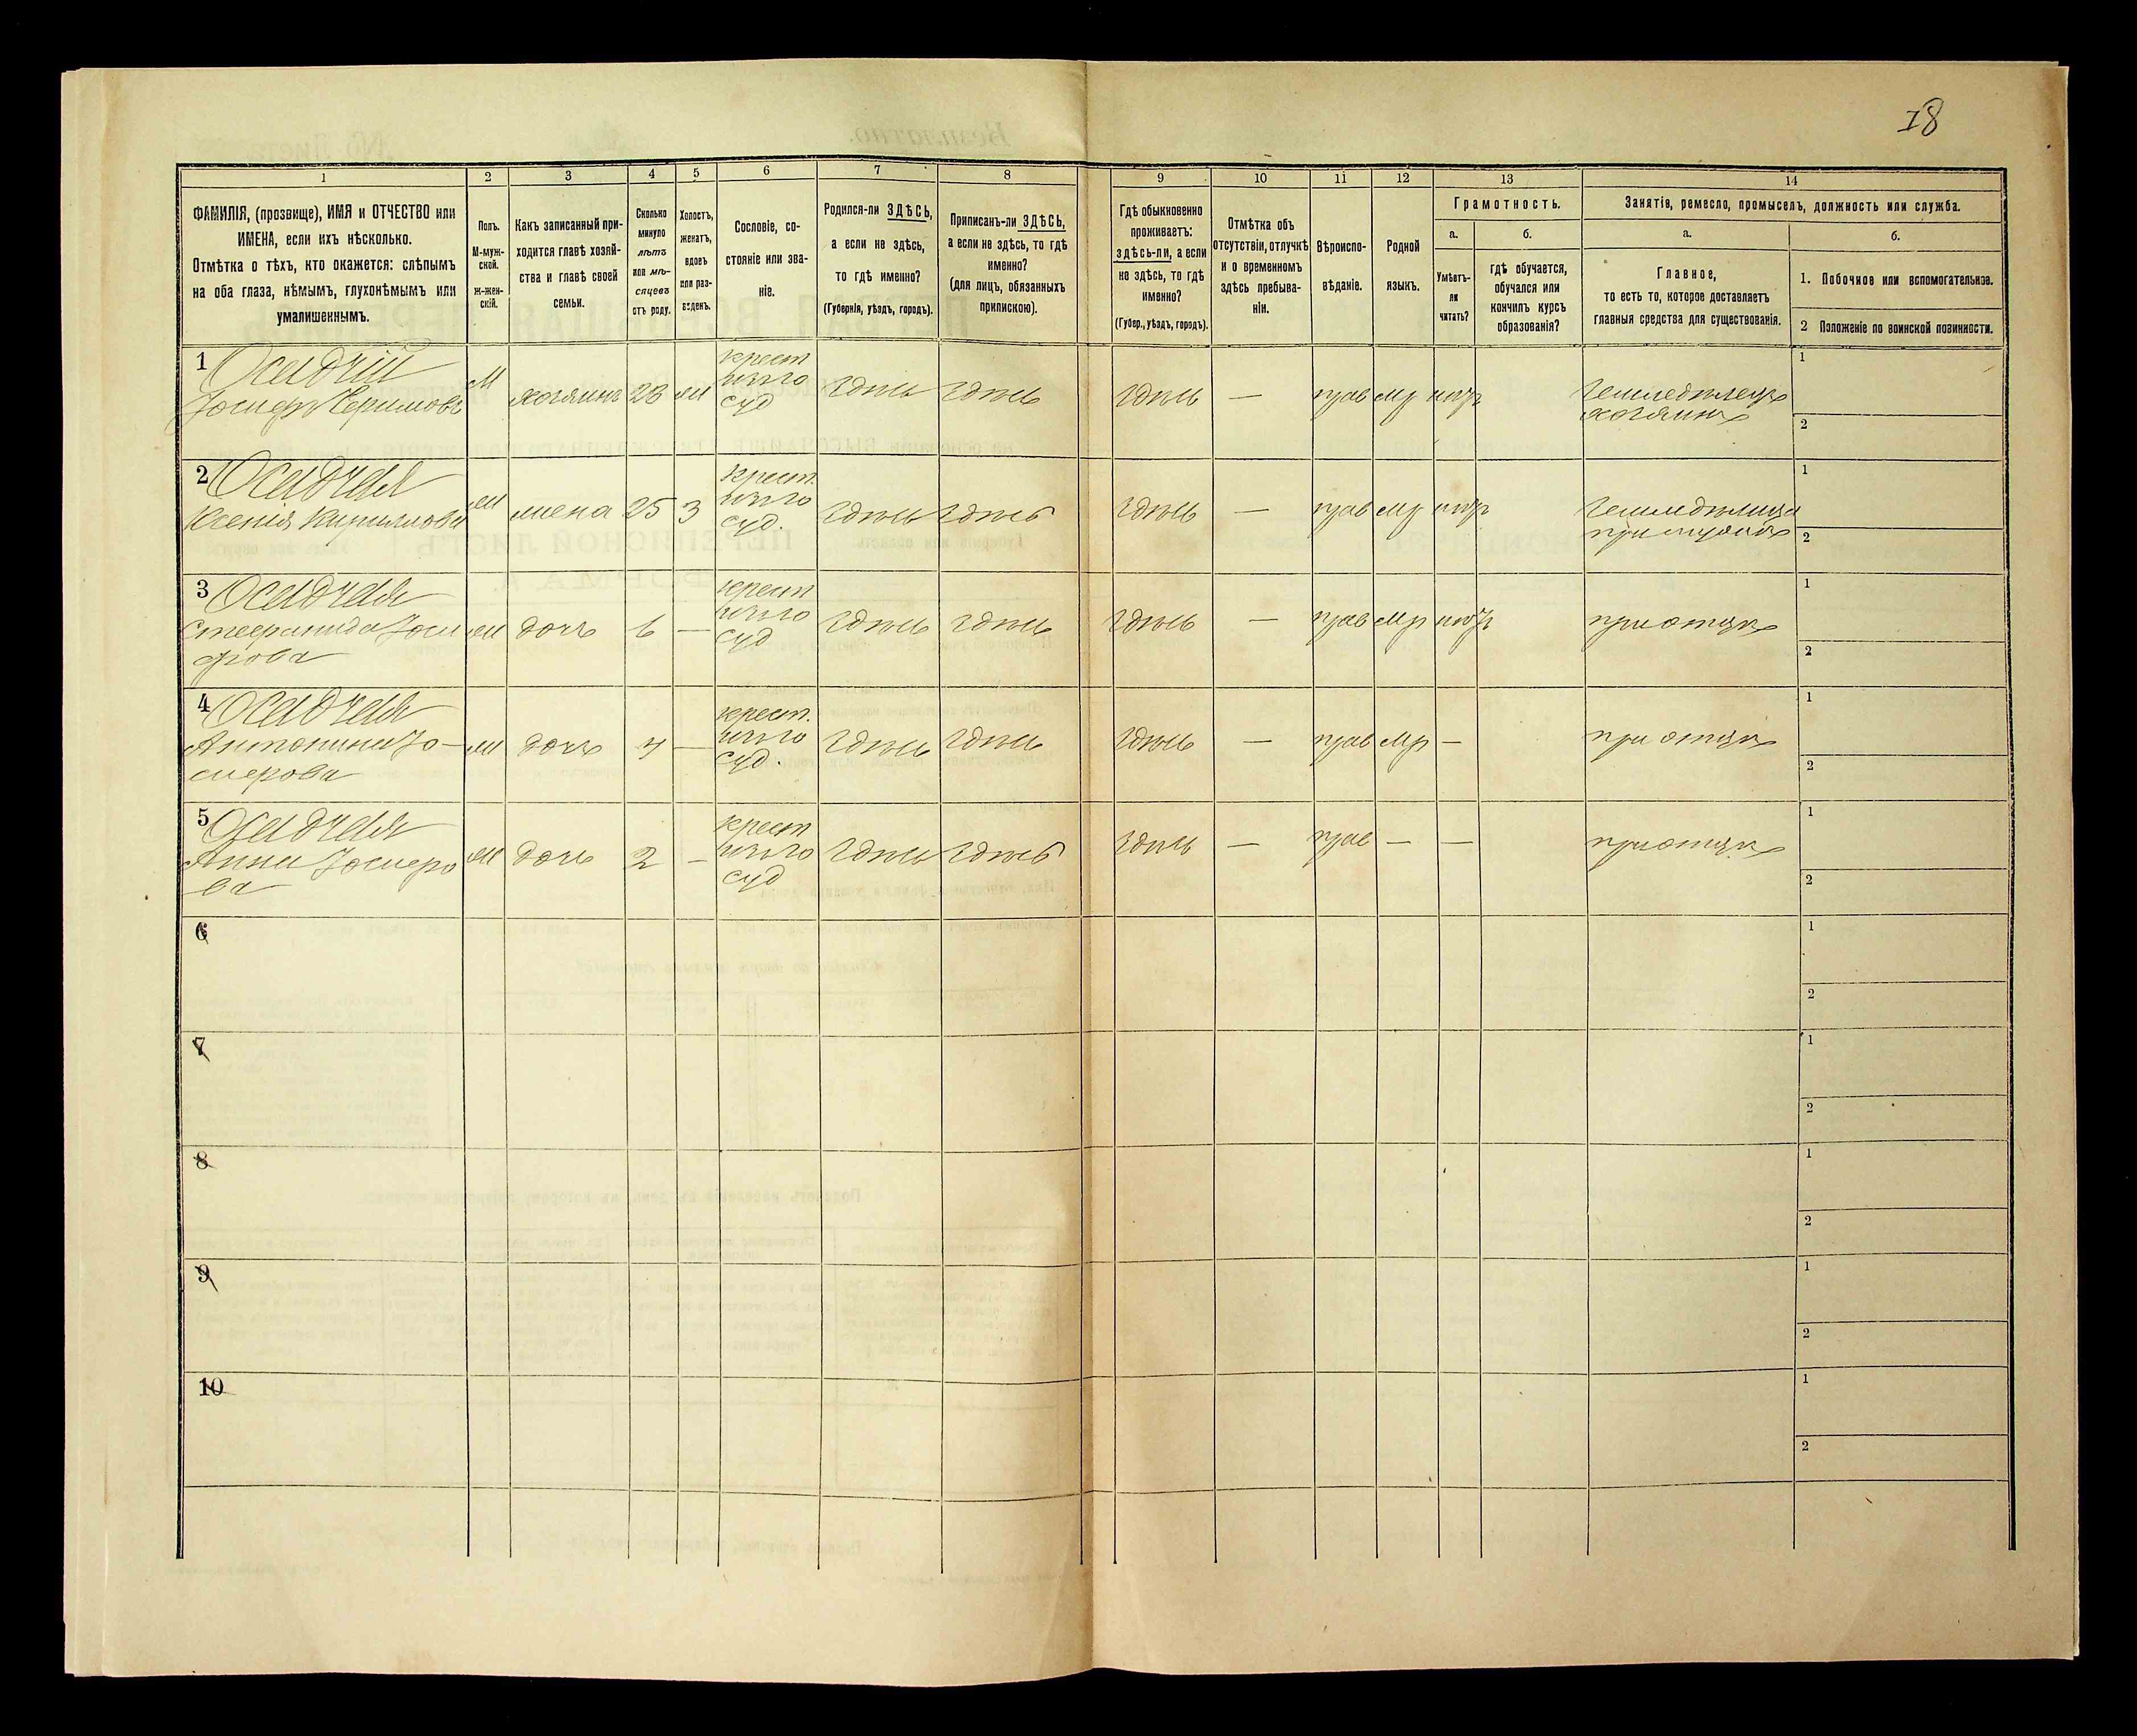 18
1
2
3
4
5
6
7
8
9
10
11
12
13
14
ФАМИЛІЯ, (прозвище), ИМЯ и ОТЧЕСТВО или
ИМЕНА, если ихъ нѣсколько.
Отмѣтка о тѣхъ, кто окажется: слѣпымъ
на оба глаза, нѣмымъ, глухонѣмымъ или
умалишеннымъ.
Полъ.
М-муж-
ской.
ж-жен-
скій.
Какъ записанный при-
ходится главѣ хозяй-
ства и главѣ своей
семьи.
Сколько
минуло
лѣтъ
или мѣ-
сяцевъ
отъ роду.
Холостъ,
женатъ,
вдовъ
или раз-
веденъ.
Сословіе, со-
стояніе или зва-
ніе.
Родился-ли ЗДѢСЬ,
а если не здѣсь,
то гдѣ именно?
(Губернія, уѣздъ, городъ).
Приписанъ-ли ЗДѢСЬ,
а если не здѣсь, то гдѣ
именно?
(для лицъ, обязанныхъ
припискою).
Гдѣ обыкновенно
проживаетъ:
здѣсь-ли, а если
не здѣсь, то гдѣ
именно?
(Губер., уѣздъ, городъ).
Отмѣтка объ
отсутствіи, отлучкѣ
и о временномъ
здѣсь пребыва-
ніи.
Вѣроиспо-
вѣданіе.
Родной
языкъ.
Грамотность.
а.
Умѣетъ-
ли
читать?
б.
гдѣ обучается,
обучался или
кончилъ курсъ
образованія?
Занятіе, ремесло, промыселъ, должность или служба.
а.
Главное,
то есть то, которое доставляетъ
главныя средства для существованія.
б.
1. Побочное или вспомогательное.
2 Положеніе по воинской повинности.
1 Осадчій
Іосифъ
М
хозяинъ
28
крест
суд
здѣсь
здѣсь
здѣсь
—
прав
мр
нѣтъ
Земледѣлецъ
хозяинъ
1
2
2 Осадчая
Ксенія Кирилова
жена
25
З
крест.
суд.
здѣсь
здѣсь
здѣсь
—
прав
мр
нѣтъ
Земледѣлица
при мужѣ
1
2
3 Осадчая
Стефанида Іоси
фова
дочь
6
—
крест
суд
здѣсь
здѣсь
здѣсь
—
прав
мр
нѣтъ
при отцѣ
1
2
4 Осадчая
Антонина Іо-
сифова
дочь
4
—
крест.
суд.
здѣсь
здѣсь
здѣсь
—
прав
мр
—
при отцѣ
1
2
5 Осадчая
Анна Іосифо
ва
дочь
2
—
крест
суд
здѣсь
здѣсь
здѣсь
—
прав
—
—
при отцѣ
1
2
6
1
2
7
1
2
8
1
2
9
1
2
10
1
2